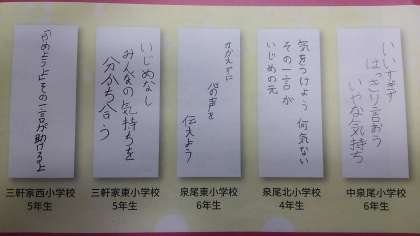 いいすぎず
はっきり言おう
いやな気持ち
中泉尾小学校
6年生
気をつけよう 何気ない
その一言が
いじめの元
泉尾北小学校
4年生
かかえずに
心の声を
伝えよう
泉尾東小学校
6年生
いじめなし
みんなの気持ちを
分かち合う
三軒家東小学校
5年生
「やめようよ」その一言が助けるよ
三軒家西小学校
5年生